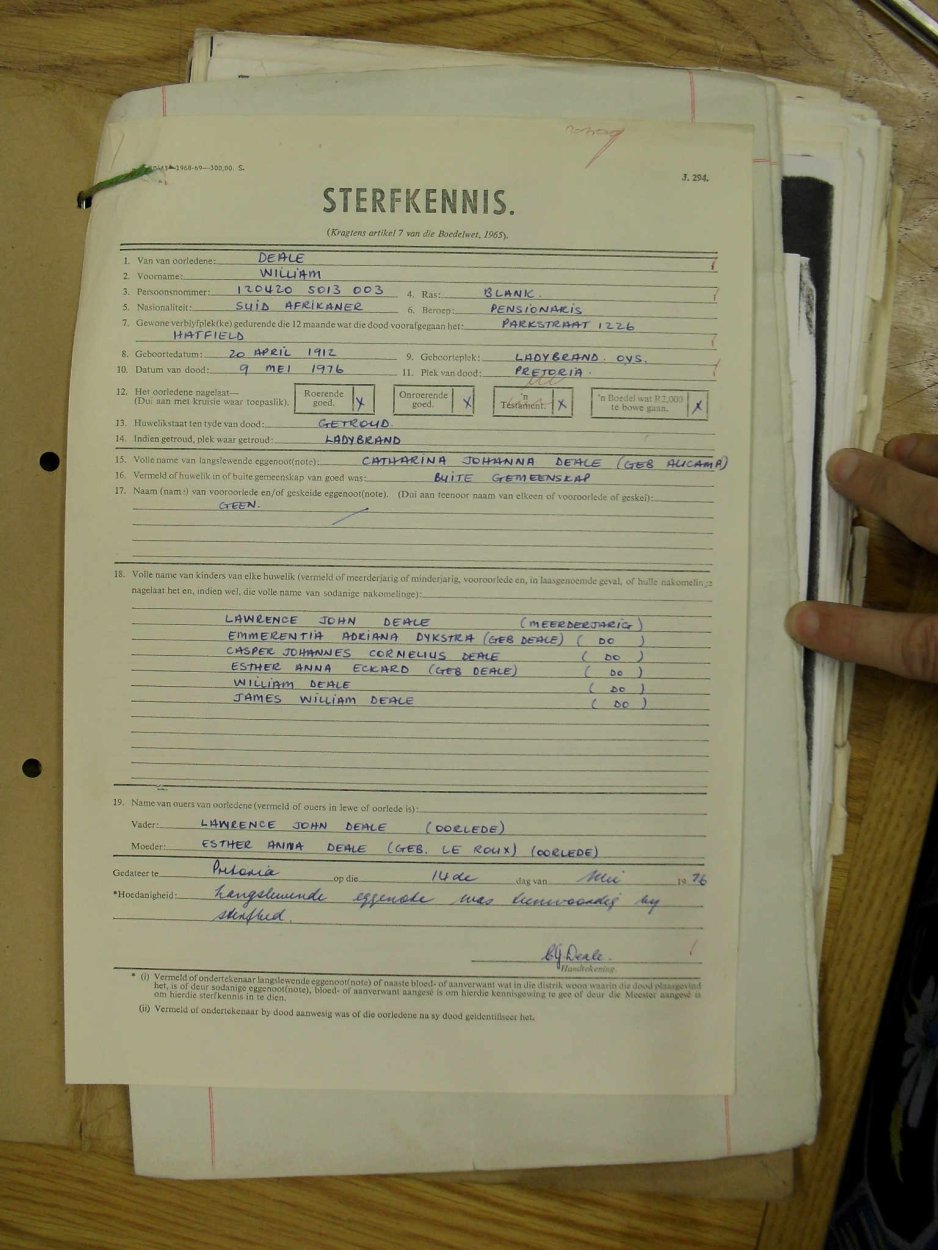 1968-69—300,00. S.
J. 294.
STERFKENNIS.
(Kragtens artikel 7 van die Boedelwet, 1965).
1. Van van oorledene: DEALE
2. Voorname: WILLIAM
3. Persoonsnommer: 120420 5013 003 4. Ras: BLANK.
5. Nasionaliteit: SUID AFRIKANER 6. Beroep: PENSIONARIS
7. Gewone verblyfplek(ke) gedurende die 12 maande wat die dood voorafgegaan het: PARKSTRAAT 1226
HATFIELD
8. Geboortedatum: 20 APRIL 1912 9. Geboorteplek: LADYBRAND. OVS.
10. Datum van dood: 9 MEI 1976 11. Plek van dood: PRETORIA.
12. Het oorledene nagelaat— Roerende Onroerende 'n 'n Boedel wat R2,000
(Dui aan met kruisie waar toepaslik). goed. X goed. X Testament. X te bowe gaan. X
13. Huwelikstaat ten tyde van dood: GETROUD.
14. Indien getroud, plek waar getroud: LADYBRAND
15. Volle name van langslewende eggenoot(note): CATHARINA JOHANNA DEALE (GEB AUCAMP)
16. Vermeld of huwelik in of buite gemeenskap van goed was: BUITE GEMEENSKAP
17. Naam (name) van vooroorlede en/of geskeide eggenoot(note). (Dui aan teenoor naam van elkeen of vooroorlede of geskei):
GEEN.
18. Volle name van kinders van elke huwelik (vermeld of meerderjarig of minderjarig, vooroorlede en, in laasgenoemde geval, of hulle nakomelinge
nagelaat het en, indien wel, die volle name van sodanige nakomelinge):
LAWRENCE JOHN DEALE (MEERDERJARIG)
EMMERENTIA ADRIANA DYKSTRA (GEB DEALE) ( DO )
CASPER JOHANNES CORNELIUS DEALE ( DO )
ESTHER ANNA ECKARD (GEB DEALE) ( DO )
WILLIAM DEALE ( DO )
JAMES WILLIAM DEALE ( DO )
19. Name van ouers van oorledene (vermeld of ouers in lewe of oorlede is):
Vader: LAWRENCE JOHN DEALE (OORLEDE)
Moeder: ESTHER ANNA DEALE (GEB. LE ROUX) (OORLEDE)
Gedateer te Pretoria op die 14de dag van Mei 1976
*Hoedanigheid: Langslewende eggenote was teenwoordig by
sterfbed.
C.J. Deale.
Handtekening.
* (i) Vermeld of ondertekenaar langslewende eggenoot(note) of naaste bloed- of aanverwant wat in die distrik woon waarin die dood plaasgevind
het, is of deur sodanige eggenoot(note), bloed- of aanverwant aangesê is om hierdie kennisgewing te gee of deur die Meester aangesê is
om hierdie sterfkennis in te dien.
(ii) Vermeld of ondertekenaar by dood aanwesig was of die oorledene na sy dood geïdentifiseer het.